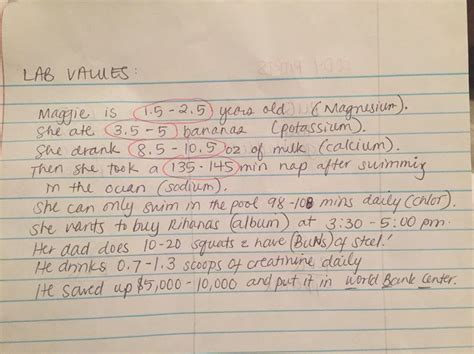 LAB VALUES:
Maggie is 1.5-2.5 years old (Magnesium).
She ate 3.5-5 bananas (potassium).
She drank 8.5-10.5 oz of milk (calcium).
Then she took a 135-145 min nap after swimming
in the ocean (sodium).
She can only swim in the pool 98-108 mins daily (chlor).
She wants to buy Rihanas (album) at 3:30-5:00 pm.
Her dad does 10-20 squats & have (BUNs) of steel!
He drinks 0.7-1.3 scoops of creatinine daily
He saved up $5,000-10,000 and put it in World Bank Center.